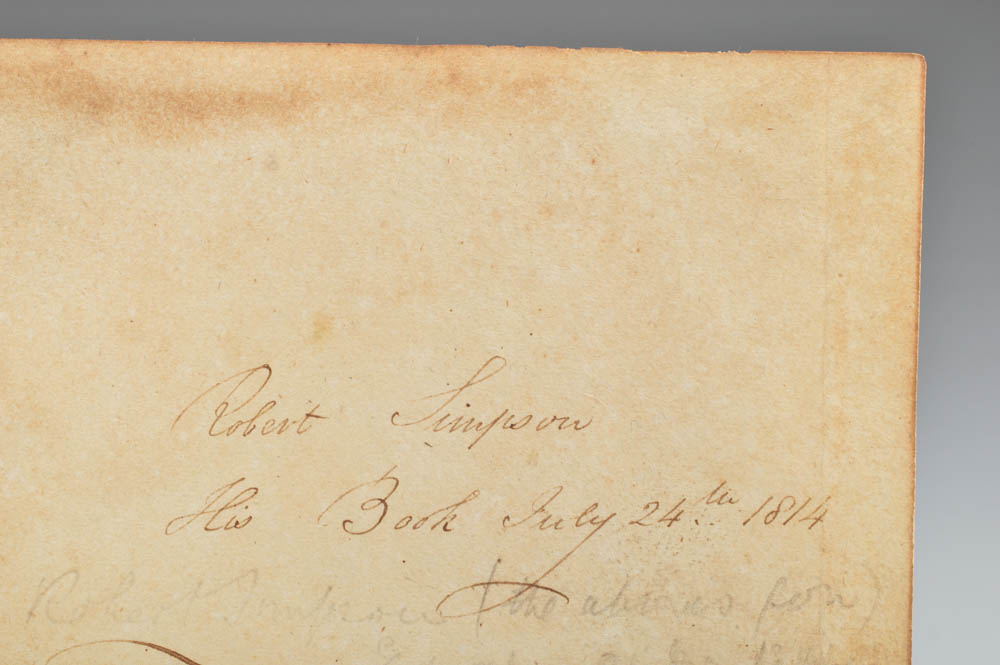 Robert Simpson
His Book July 24th 1814
Robert Simpson (the above's son)